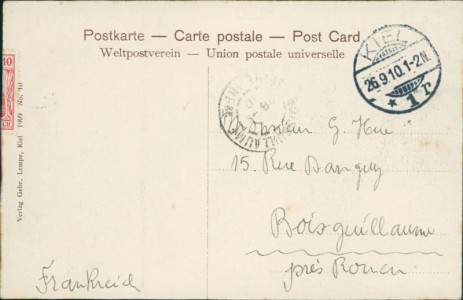 Postkarte — Carte postale — Post Card
Weltpostverein — Union postale universelle
KIEL
26.9.10.1-2N.
* 1 r
10
Verlag Gebr. Lempe, Kiel 1909 No. 10
Monsieur G. Hue
15. Rue Danguy
Boisguillaume
près Rouen.
Frankreich